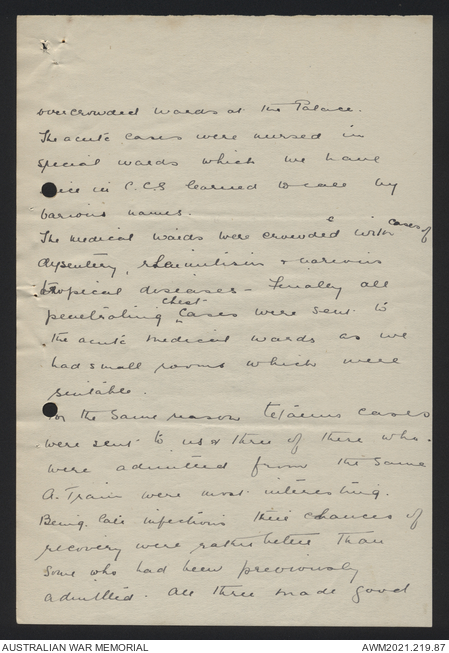 overcrowded wards at the Palace.
The acute cases were nursed in
special wards which we have
since in C.C.S learned to call by
various names.
The medical wards were crowded with cases of
dysentery, rheumitism & various
tropical diseases - Finally all
penetrating chest cases were sent to
the acute medical wards as we
had small rooms which were
suitable.
For the same reason tetanus cases
were sent to us & three of these who
were admitted from the same
A. Train were most interesting.
Being late infections their chances of
recovery were rather better than
some who had been previously
admitted. All three made good
AUSTRALIAN WAR MEMORIAL
AWM2021.219.87